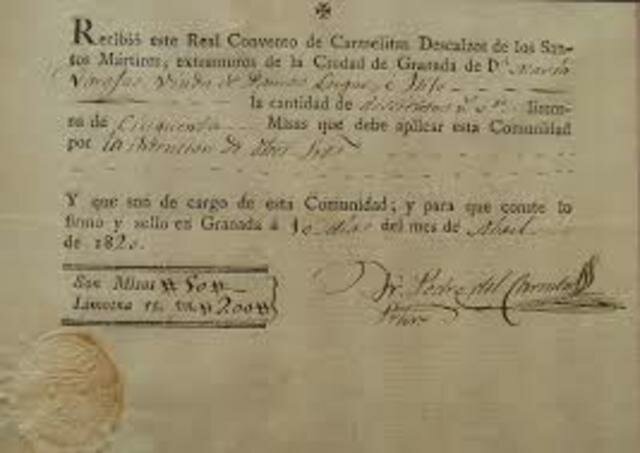 ✠
Recibió este Real Convento de Carmelitas Descalzos de los San-
tos Mártires, extramuros de la Ciudad de Granada de D.ª María
Viuda de
la cantidad de doscientos limos-
na de Cinquenta Misas que debe aplicar esta Comunidad
por la intencion de
Y que son de cargo de esta Comunidad; y para que conste lo
firmo y sello en Granada á 10 dias del mes de Abril
de 1820.
Son Misas # 50 #
Limosna rs. vn. # 200 #
Fr. Pedro del
Prior